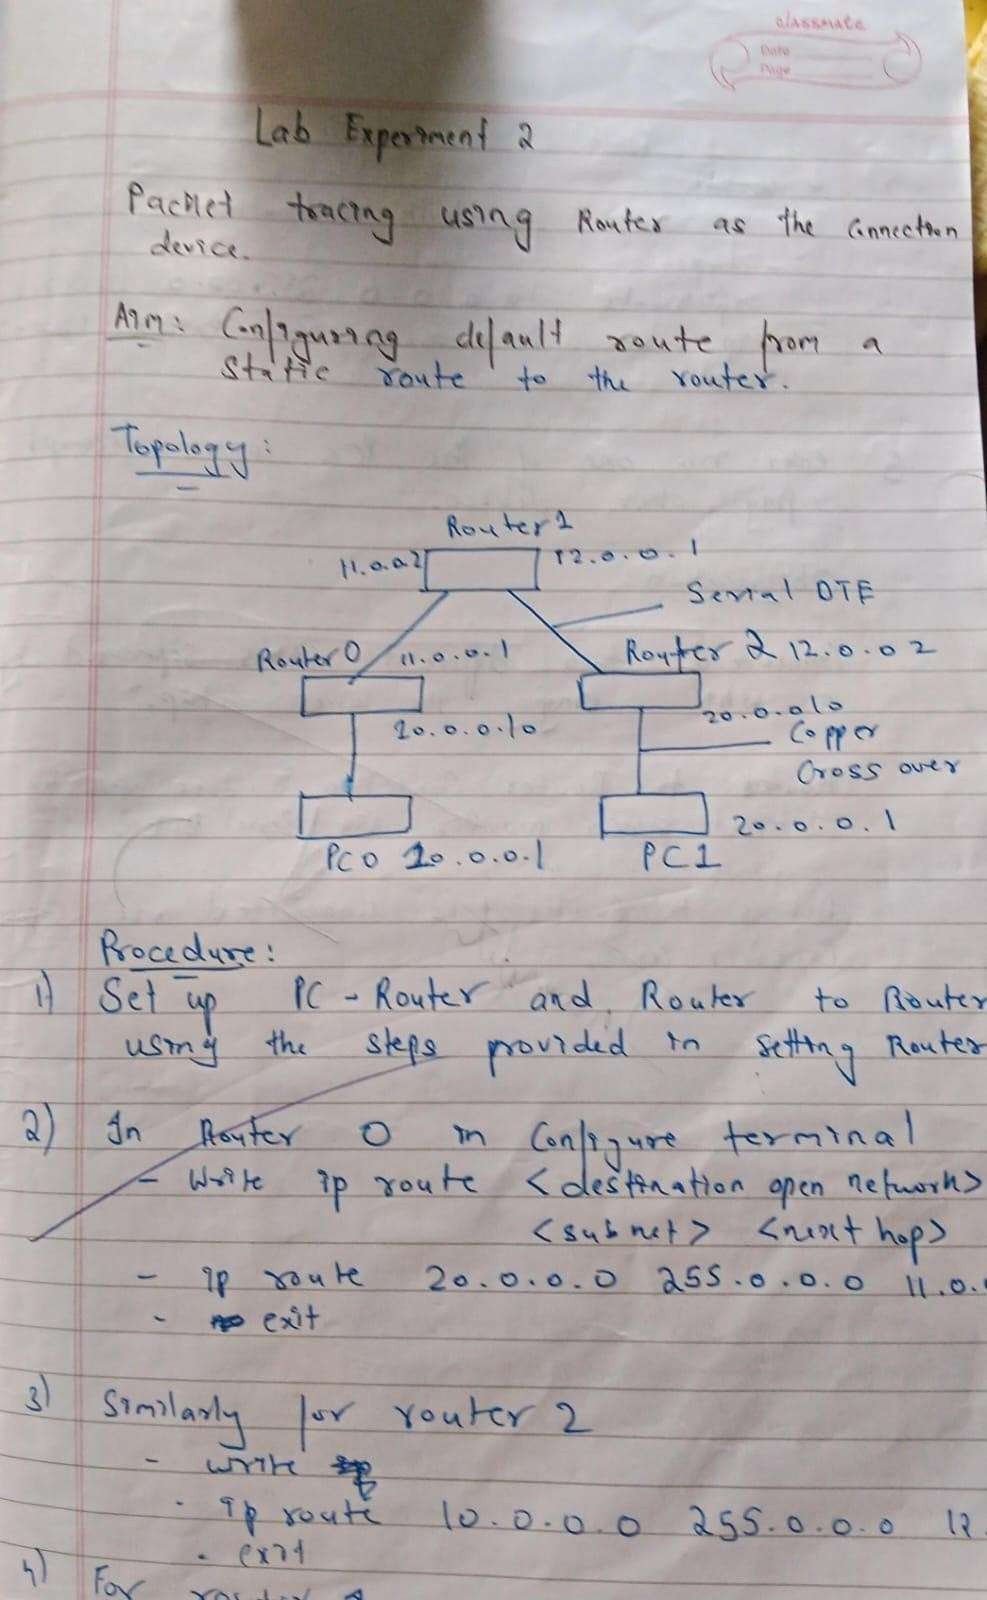 classmate
Date
Page
Lab Experiment 2
Packet tracing using Router as the Connection
device.
Aim: Configuring default route from a
Static route to the router.
Topology:
Router 1
11.0.0.2 12.0.0.1
Serial DTE
Router 0 11.0.0.1 Router 2 12.0.0.2
10.0.0.10 20.0.0.10
Copper
Cross over
20.0.0.1
PC0 10.0.0.1 PC1
Procedure:
1) Set up PC - Router and Router to Router
using the steps provided in setting Router
2) In Router 0 in Configure terminal
- Write ip route <destination open network>
<subnet> <next hop>
- ip route 20.0.0.0 255.0.0.0 11.0.
- exit
3) Similarly for router 2
- write
- ip route 10.0.0.0 255.0.0.0 12.
- exit
4) For router